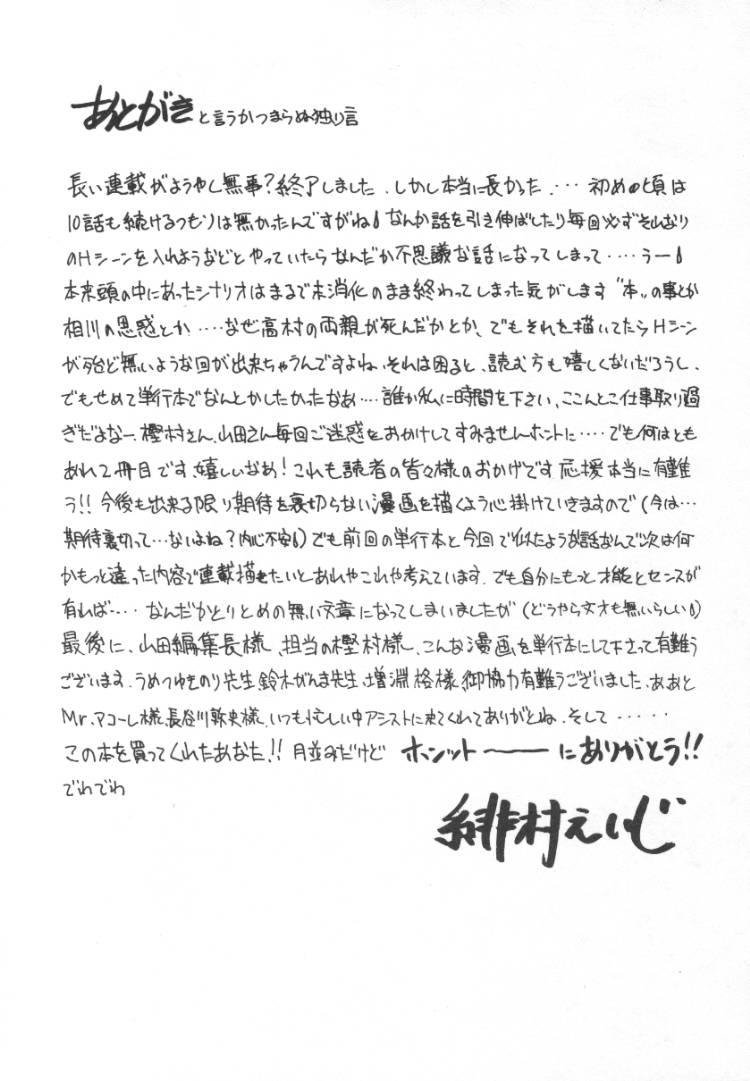 あとがきと言うかつまらぬ独り言
長い連載がようやく無事?終了しました。しかし本当に長かった.…初めの頃は
10話も続けるつもりは無かったんですがね なんか話を引き伸ばしたり毎回必ずそれなり
のHシーンを入れようなどとやっていたらなんだか不思議な話になってしまって‥‥うー
本来頭の中にあったシナリオはまるで未消化のまま終わってしまった気がします〝本〟の事とか
相川の思惑とか‥‥なぜ高村の両親が死んだかとか、でもそれを描いてたらHシーン
が殆ど無いような回が出来ちゃうんですよね、それは困ると、読む方も嬉しくないだろうし、
でもせめて単行本でなんとかしたかったなあ‥‥誰か私に時間を下さい、ここんとこ仕事取り過
ぎだよなー、樫村さん、山田さん毎回ご迷惑をおかけしてすみませんホントに‥‥でも何はとも
あれ2冊目です、嬉しいなあ!これも読者の皆々様のおかげです応援本当に有難
う!!今後も出来る限り期待を裏切らない漫画を描くよう心掛けていきますので(今は…
期待裏切って…ないよね?内心不安)でも前回の単行本と今回で似たような話なんで次は何
かもっと違った内容で連載描きたいとあれやこれや考えています。でも自分にもっと才能とセンスが
有れば‥‥なんだかとりとめの無い文章になってしまいましたが(どうやら文才も無いらしい)
最後に、山田編集長様、担当の樫村様、こんな漫画を単行本にして下さって有難う
ございます。うめつゆきのり先生、鈴木がんま先生、増淵格様、御協力有難うございました、ああと
Mr.アコーレ様、長谷川幹史様、いつも忙しい中アシストに来てくれてありがとね、そして‥‥‥
この本を買ってくれたあなた!!月並みだけど ホンットーーーにありがとう!!
でわでわ
緋村えいじ